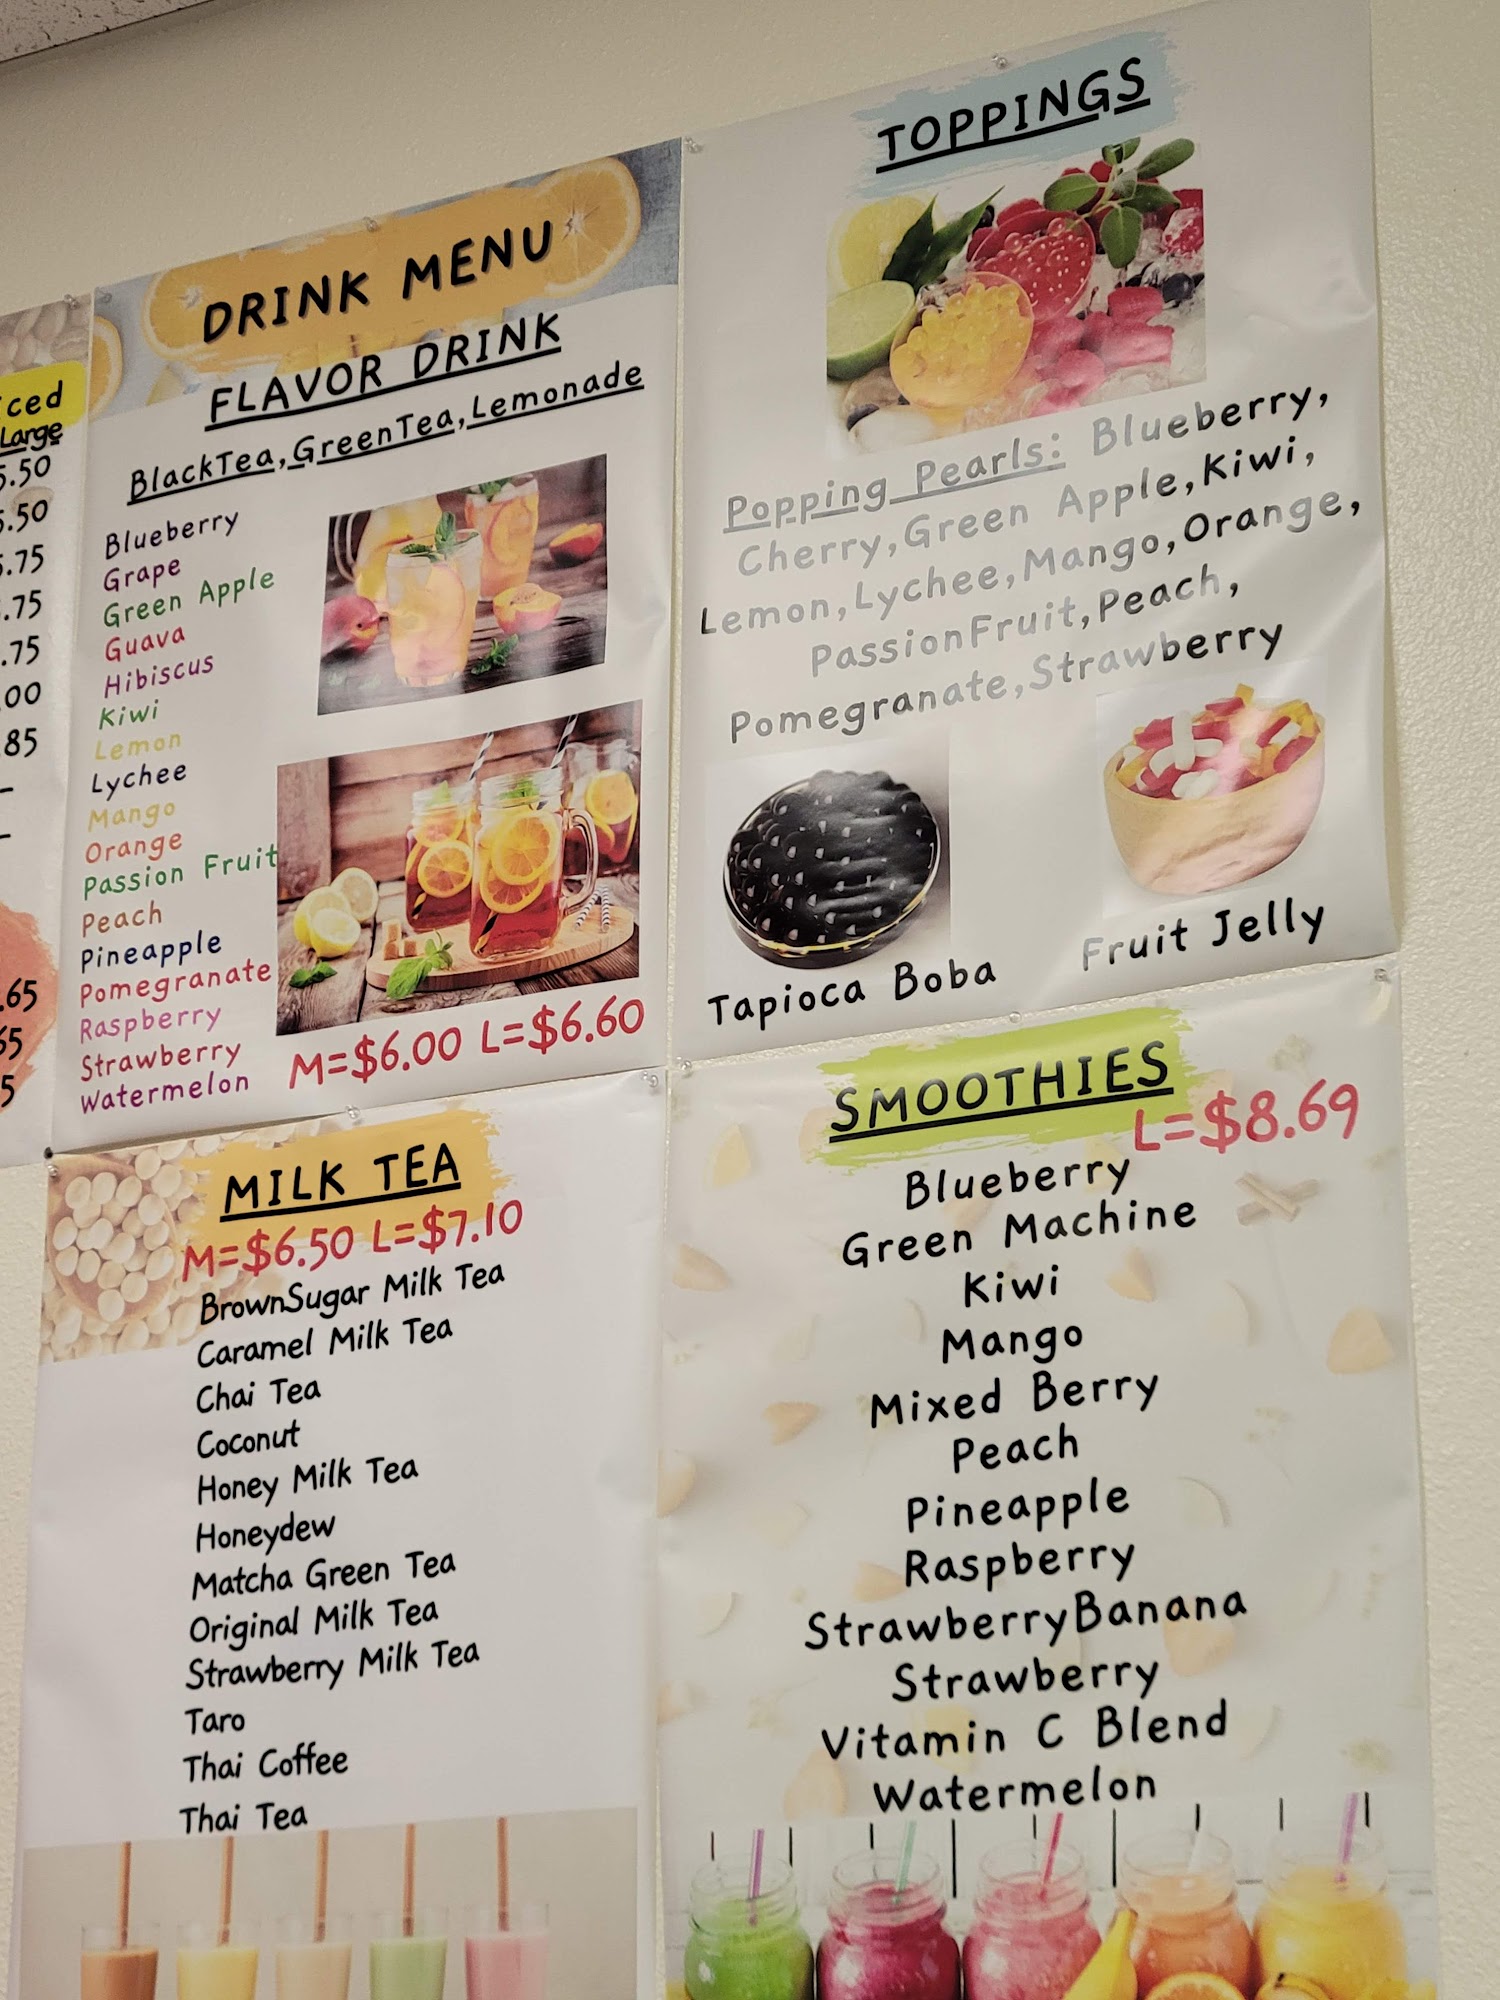 ced
Large
5.50
.50
.75
.75
.75
.00
.85
.65
5
DRINK MENU
FLAVOR DRINK
BlackTea,GreenTea,Lemonade
Blueberry
Grape
Green Apple
Guava
Hibiscus
Kiwi
Lemon
Lychee
Mango
Orange
Passion Fruit
Peach
Pineapple
Pomegranate
Raspberry
Strawberry
Watermelon
M=$6.00 L=$6.60
TOPPINGS
Popping Pearls: Blueberry,
Cherry,Green Apple,Kiwi,
Lemon,Lychee,Mango,Orange,
PassionFruit,Peach,
Pomegranate,Strawberry
Tapioca Boba
Fruit Jelly
MILK TEA
M=$6.50 L=$7.10
BrownSugar Milk Tea
Caramel Milk Tea
Chai Tea
Coconut
Honey Milk Tea
Honeydew
Matcha Green Tea
Original Milk Tea
Strawberry Milk Tea
Taro
Thai Coffee
Thai Tea
SMOOTHIES
L=$8.69
Blueberry
Green Machine
Kiwi
Mango
Mixed Berry
Peach
Pineapple
Raspberry
StrawberryBanana
Strawberry
Vitamin C Blend
Watermelon